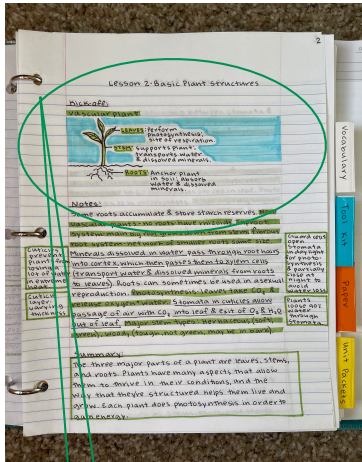 2
Lesson 2-Basic Plant Structures
Kick-off:
vascular plant
LEAVES: Perform
photosynthesis;
site of respiration.
STEM: supports plant;
transports water
& dissolved minerals.
ROOTS: Anchor plant
in soil; absorb
water & dissolved
minerals.
Notes:
Some roots accumulate & store starch reserves. Non
vascular plants-no roots have rhizoids.
root system-
root system-
Minerals dissolved in water pass through root hairs
into cortex which then passes them to xylem cells
(transport water & dissolved minerals from roots
to leaves). Roots can sometimes be used in asexual
reproduction. Photosynthesis: leaves take CO2 &
release O2 and water. Stomata in cuticles allow
passage of air with CO2 into leaf & exit of O2 & H2O
out of leaf. Major stem types: herbaceous (soft,
green), woody (tough, not green, may be in bark)
Cuticles
prevent
plant from
losing a
lot of water
in extreme
heat.
Cuticle
layer
varying
thickness
Guard cells
open
stomata
in daylight
for photo-
synthesis &
partially
close at
night to
avoid
water loss
Plants
loose 90%
water
through
stomata
Summary:
The three major parts of a plant are leaves, stems,
and roots. Plants have many aspects that allow
them to thrive in their conditions, and the
way that they're structured helps them live and
grow. Each plant does photosynthesis in order to
gain energy.
Vocabulary
Tool Kit
Paper
Unit Packets